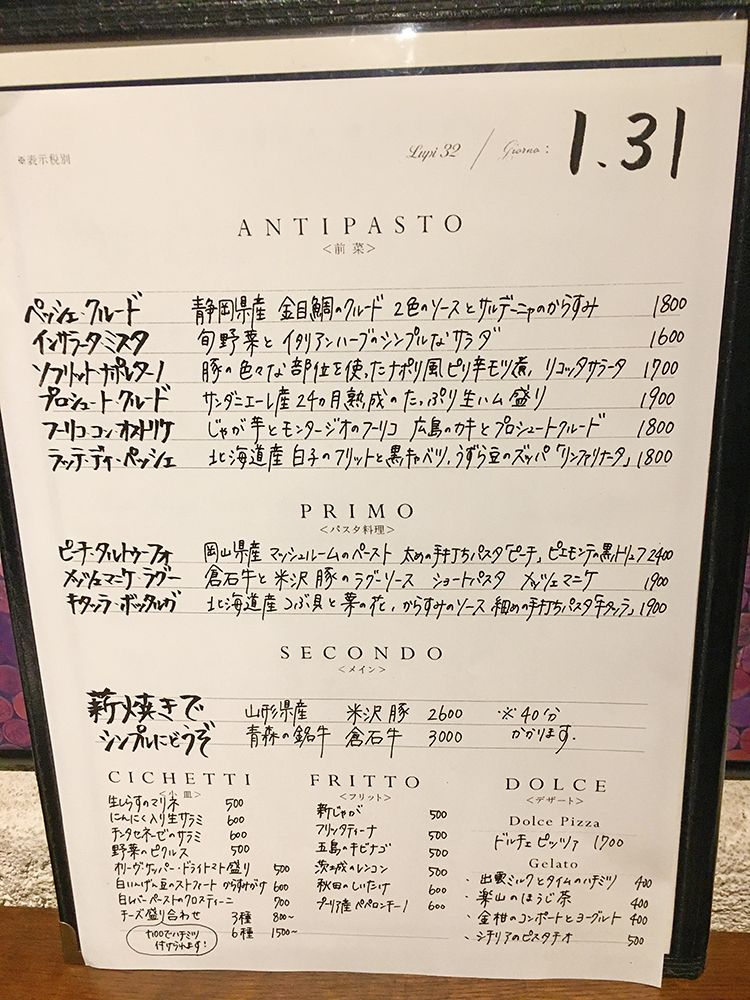 ※表示税別
Lupi 32 / Giorno : 1.31
ANTIPASTO
<前菜>
ペッシェ・クルード 静岡県産 金目鯛のクルード 2色のソースとサルデーニャのからすみ 1800
インサラータ・ミスタ 旬野菜とイタリアンハーブのシンプルなサラダ 1600
ソフリット・ナポレターノ 豚の色々な部位を使ったナポリ風ピリ辛モツ煮、リコッタサラータ 1700
プロシュート・クルード サンダニエーレ産24ヵ月熟成のたっぷり生ハム盛り 1900
フーリコ・コン・オストリケ じゃが芋とモンタージオのフーリコ 広島のカキとプロシュートクルード 1800
ラッテ・ディ・ペッシェ 北海道産 白子のフリットと黒キャベツ、うずら豆のズッパ「リンファリナータ」 1800
PRIMO
<パスタ料理>
ピーチ・タルトゥーフォ 岡山県産 マッシュルームのペースト 太めの手打ちパスタ「ピーチ」、ピエモンテの黒トリュフ 2400
メッツェマニケ・ラグー 倉石牛と米沢豚のラグーソース ショートパスタ メッツェマニケ 1900
キタッラ・ボッタルガ 北海道産つぶ貝と菜の花、からすみのソース 細めの手打ちパスタ「キタッラ」 1900
SECONDO
<メイン>
薪焼きで 山形県産 米沢豚 2600 ※40分
シンプルにどうぞ 青森の銘牛 倉石牛 3000 かかります.
CICHETTI
<小皿>
生しらすのマリネ 500
にんにく入り生サラミ 600
チンタセネーゼのサラミ 600
野菜のピクルス 500
オリーヴ・ケッパー・ドライトマト盛り 500
白いんげん豆のストフィート からすみがけ 600
白レバーペーストのクロスティーニ 700
チーズ盛り合わせ 3種 800~
6種 1500~
+100でハチミツ
付けられます!
FRITTO
<フリット>
新じゃが 500
フリッタティーナ 500
五島のキビナゴ 500
茨城のレンコン 500
秋田のしいたけ 600
プーリア産ペペロンチーノ 600
DOLCE
<デザート>
Dolce Pizza
ドルチェピッツァ 1700
Gelato
・出雲ミルクとタイムのハチミツ 400
・楽山のほうじ茶 400
・金柑のコンポートとヨーグルト 400
・シチリアのピスタチオ 500